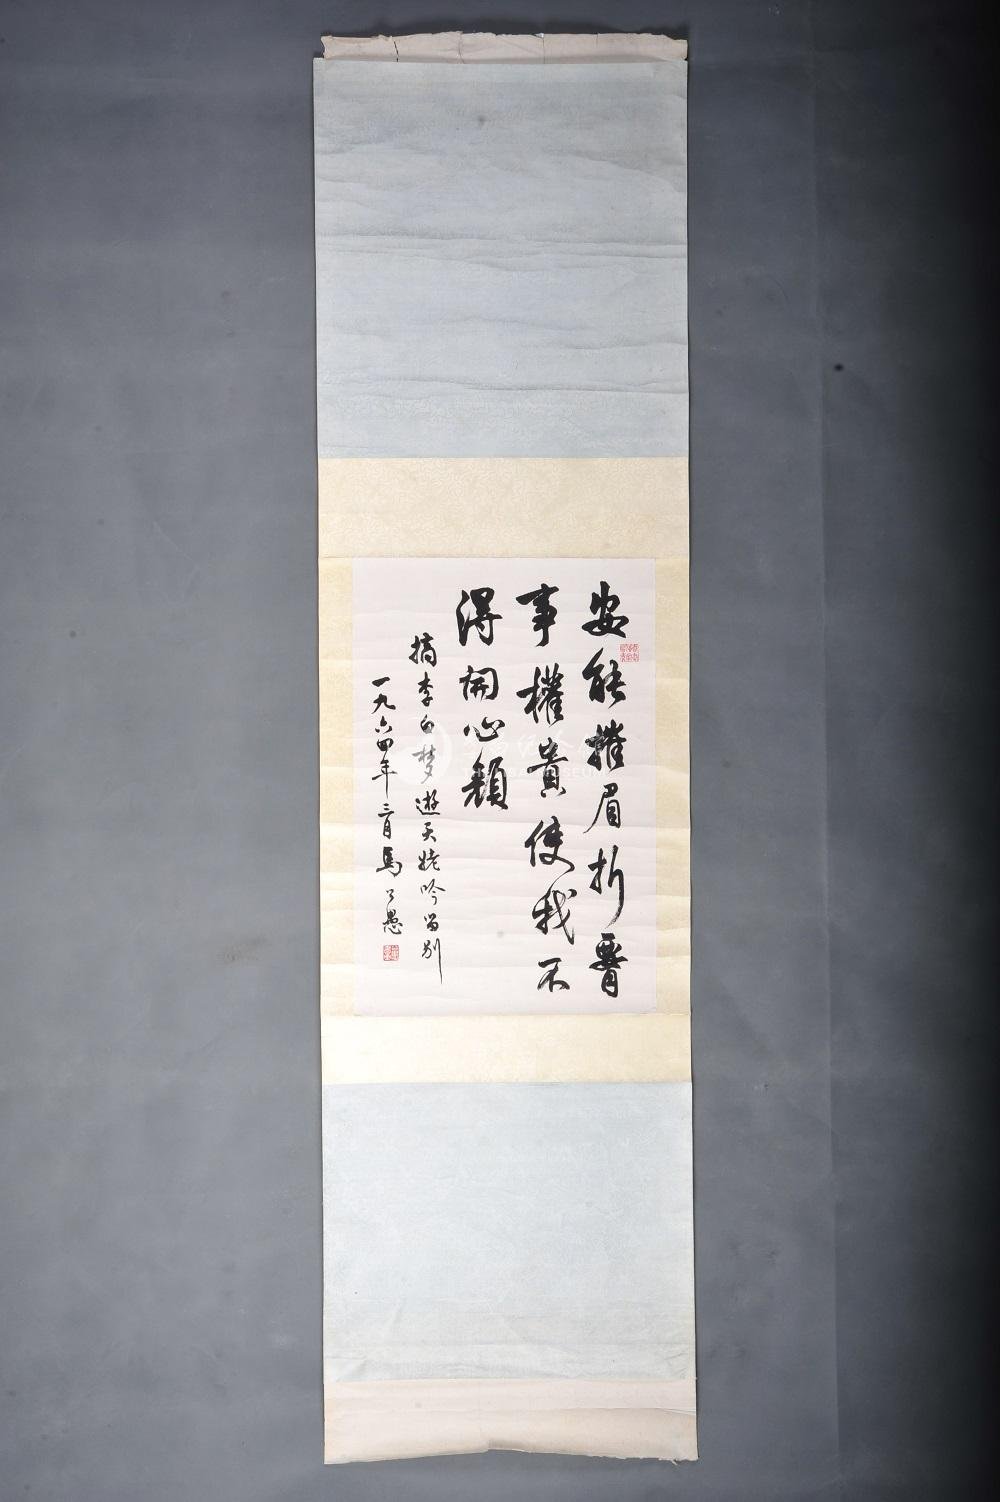 安能摧眉折腎
事權貴使我不
得開心顏
摘李白梦遊天姥吟留别
一九六四年三月馬公愚